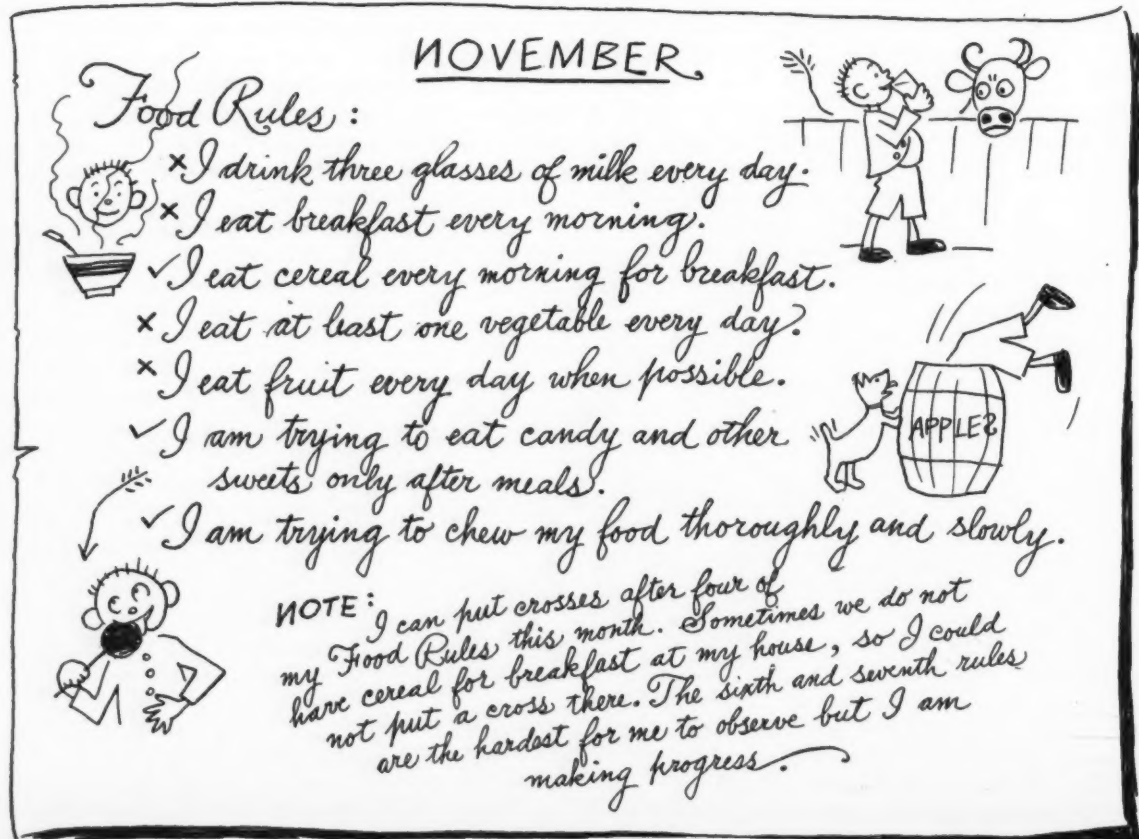 NOVEMBER
Food Rules:
× I drink three glasses of milk every day.
× I eat breakfast every morning.
✓ I eat cereal every morning for breakfast.
× I eat at least one vegetable every day?
× I eat fruit every day when possible.
✓ I am trying to eat candy and other
sweets only after meals.
✓ I am trying to chew my food thoroughly and slowly.
APPLES
NOTE: I can put crosses after four of
my Food Rules this month. Sometimes we do not
have cereal for breakfast at my house, so I could
not put a cross there. The sixth and seventh rules
are the hardest for me to observe but I am
making progress.